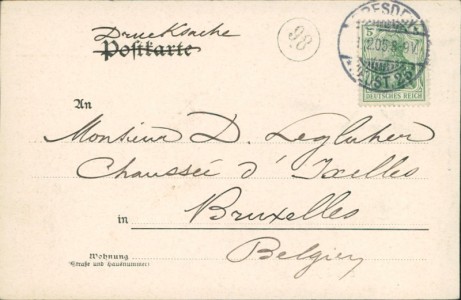 Drucksache
Postkarte
98
DRESDEN
5 5
2.05.8-9V.
ALTST. 25
DEUTSCHES REICH
An
Monsieur D.
Chaussée d'Ixelles
in Bruxelles
Wohnung
(Straße und Hausnummer)
Belgien